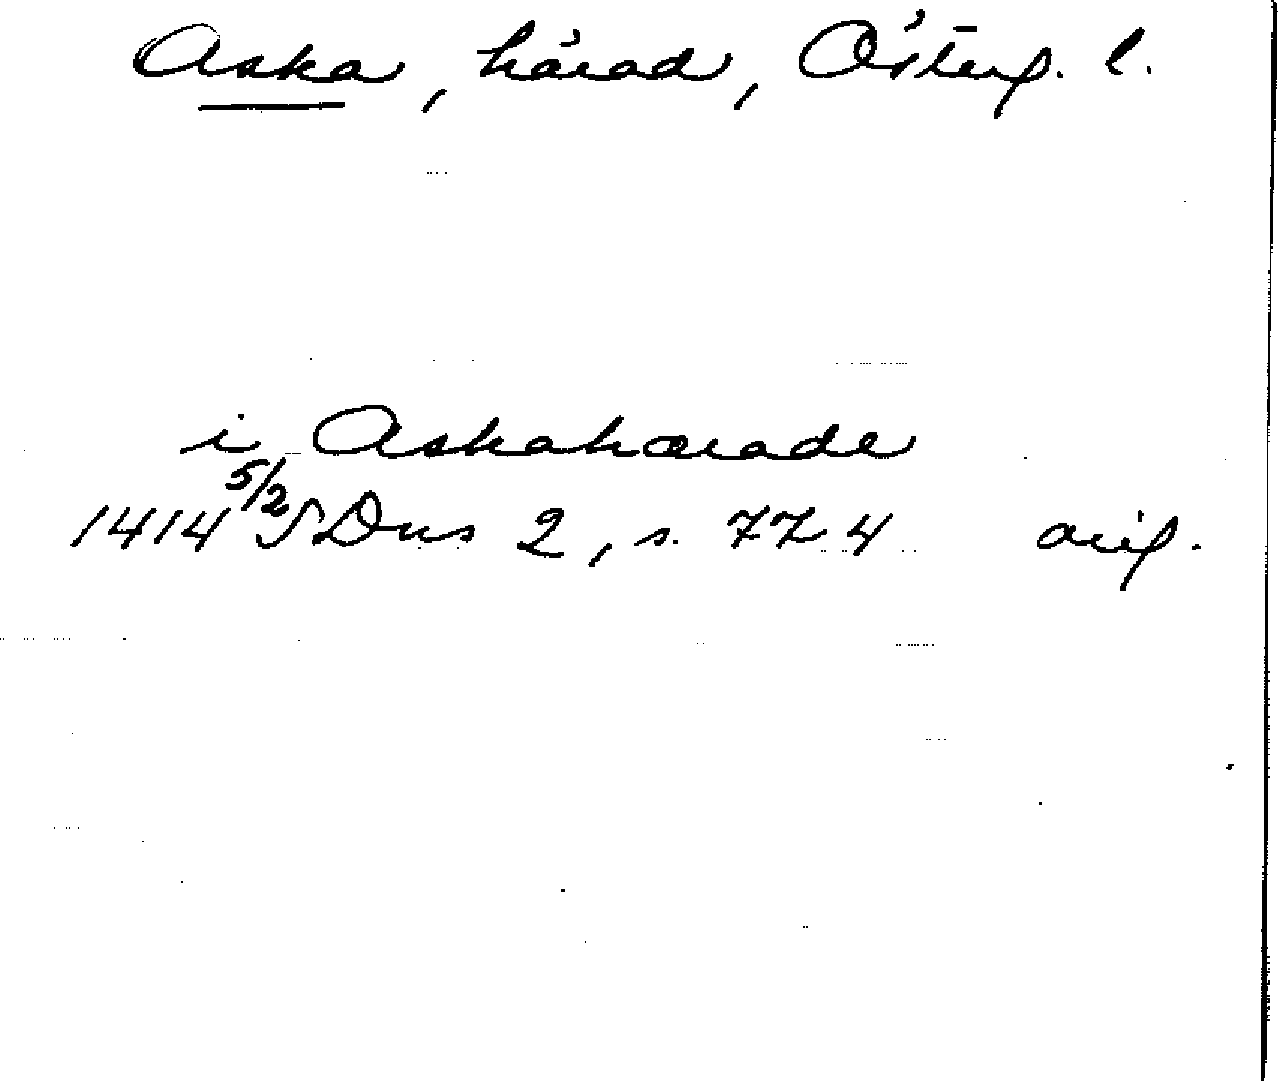 Aska, härad, Österg. l.
i Askahærade
1414 5/2 SDns 2, s. 774 orig.